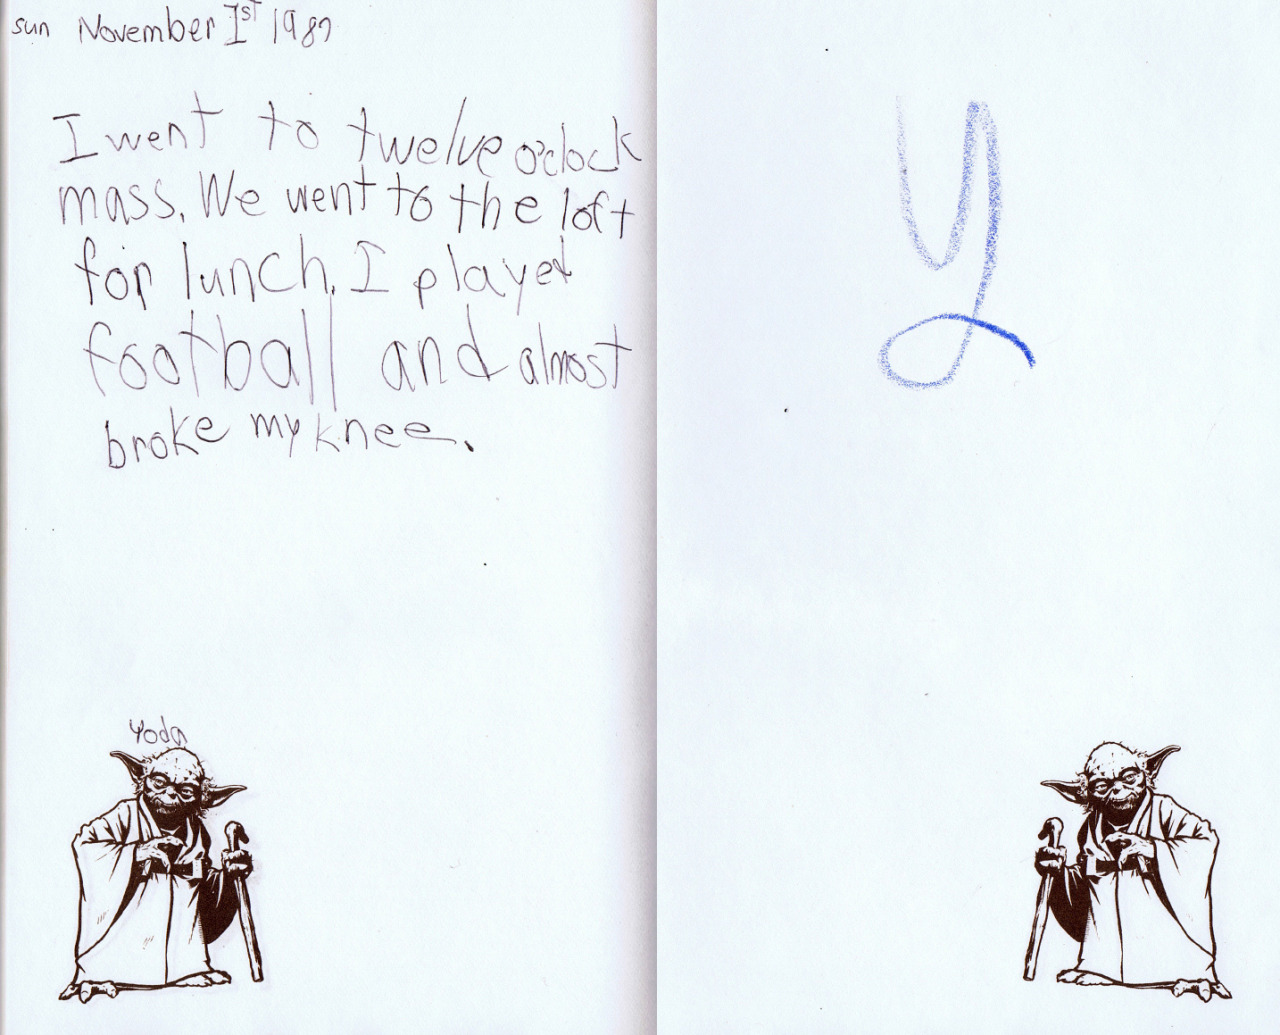 sun November 1st 1987
I went to twelve o'clock
mass. We went to the loft
for lunch. I played
football and almost
broke my knee.
Yoda
y